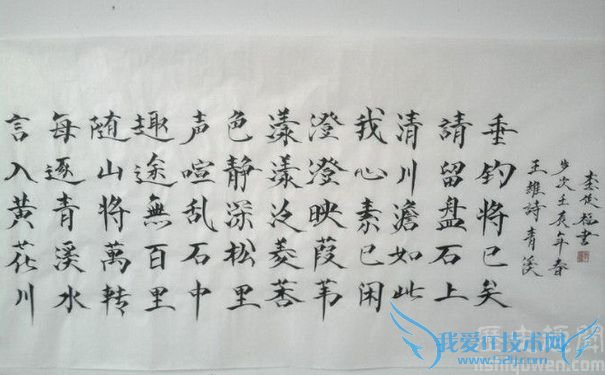 言入黄花川
每逐青溪水
随山将萬转
趣途無百里
声喧乱石中
色静深松里
漾漾泛菱莕
澄澄映葭苇
我心素已闲
清川澹如此
請留盘石上
垂钓将已矣
王維詩青溪
岁次壬辰年春
李俊書
我爱IT技术网
lishiquwen.com